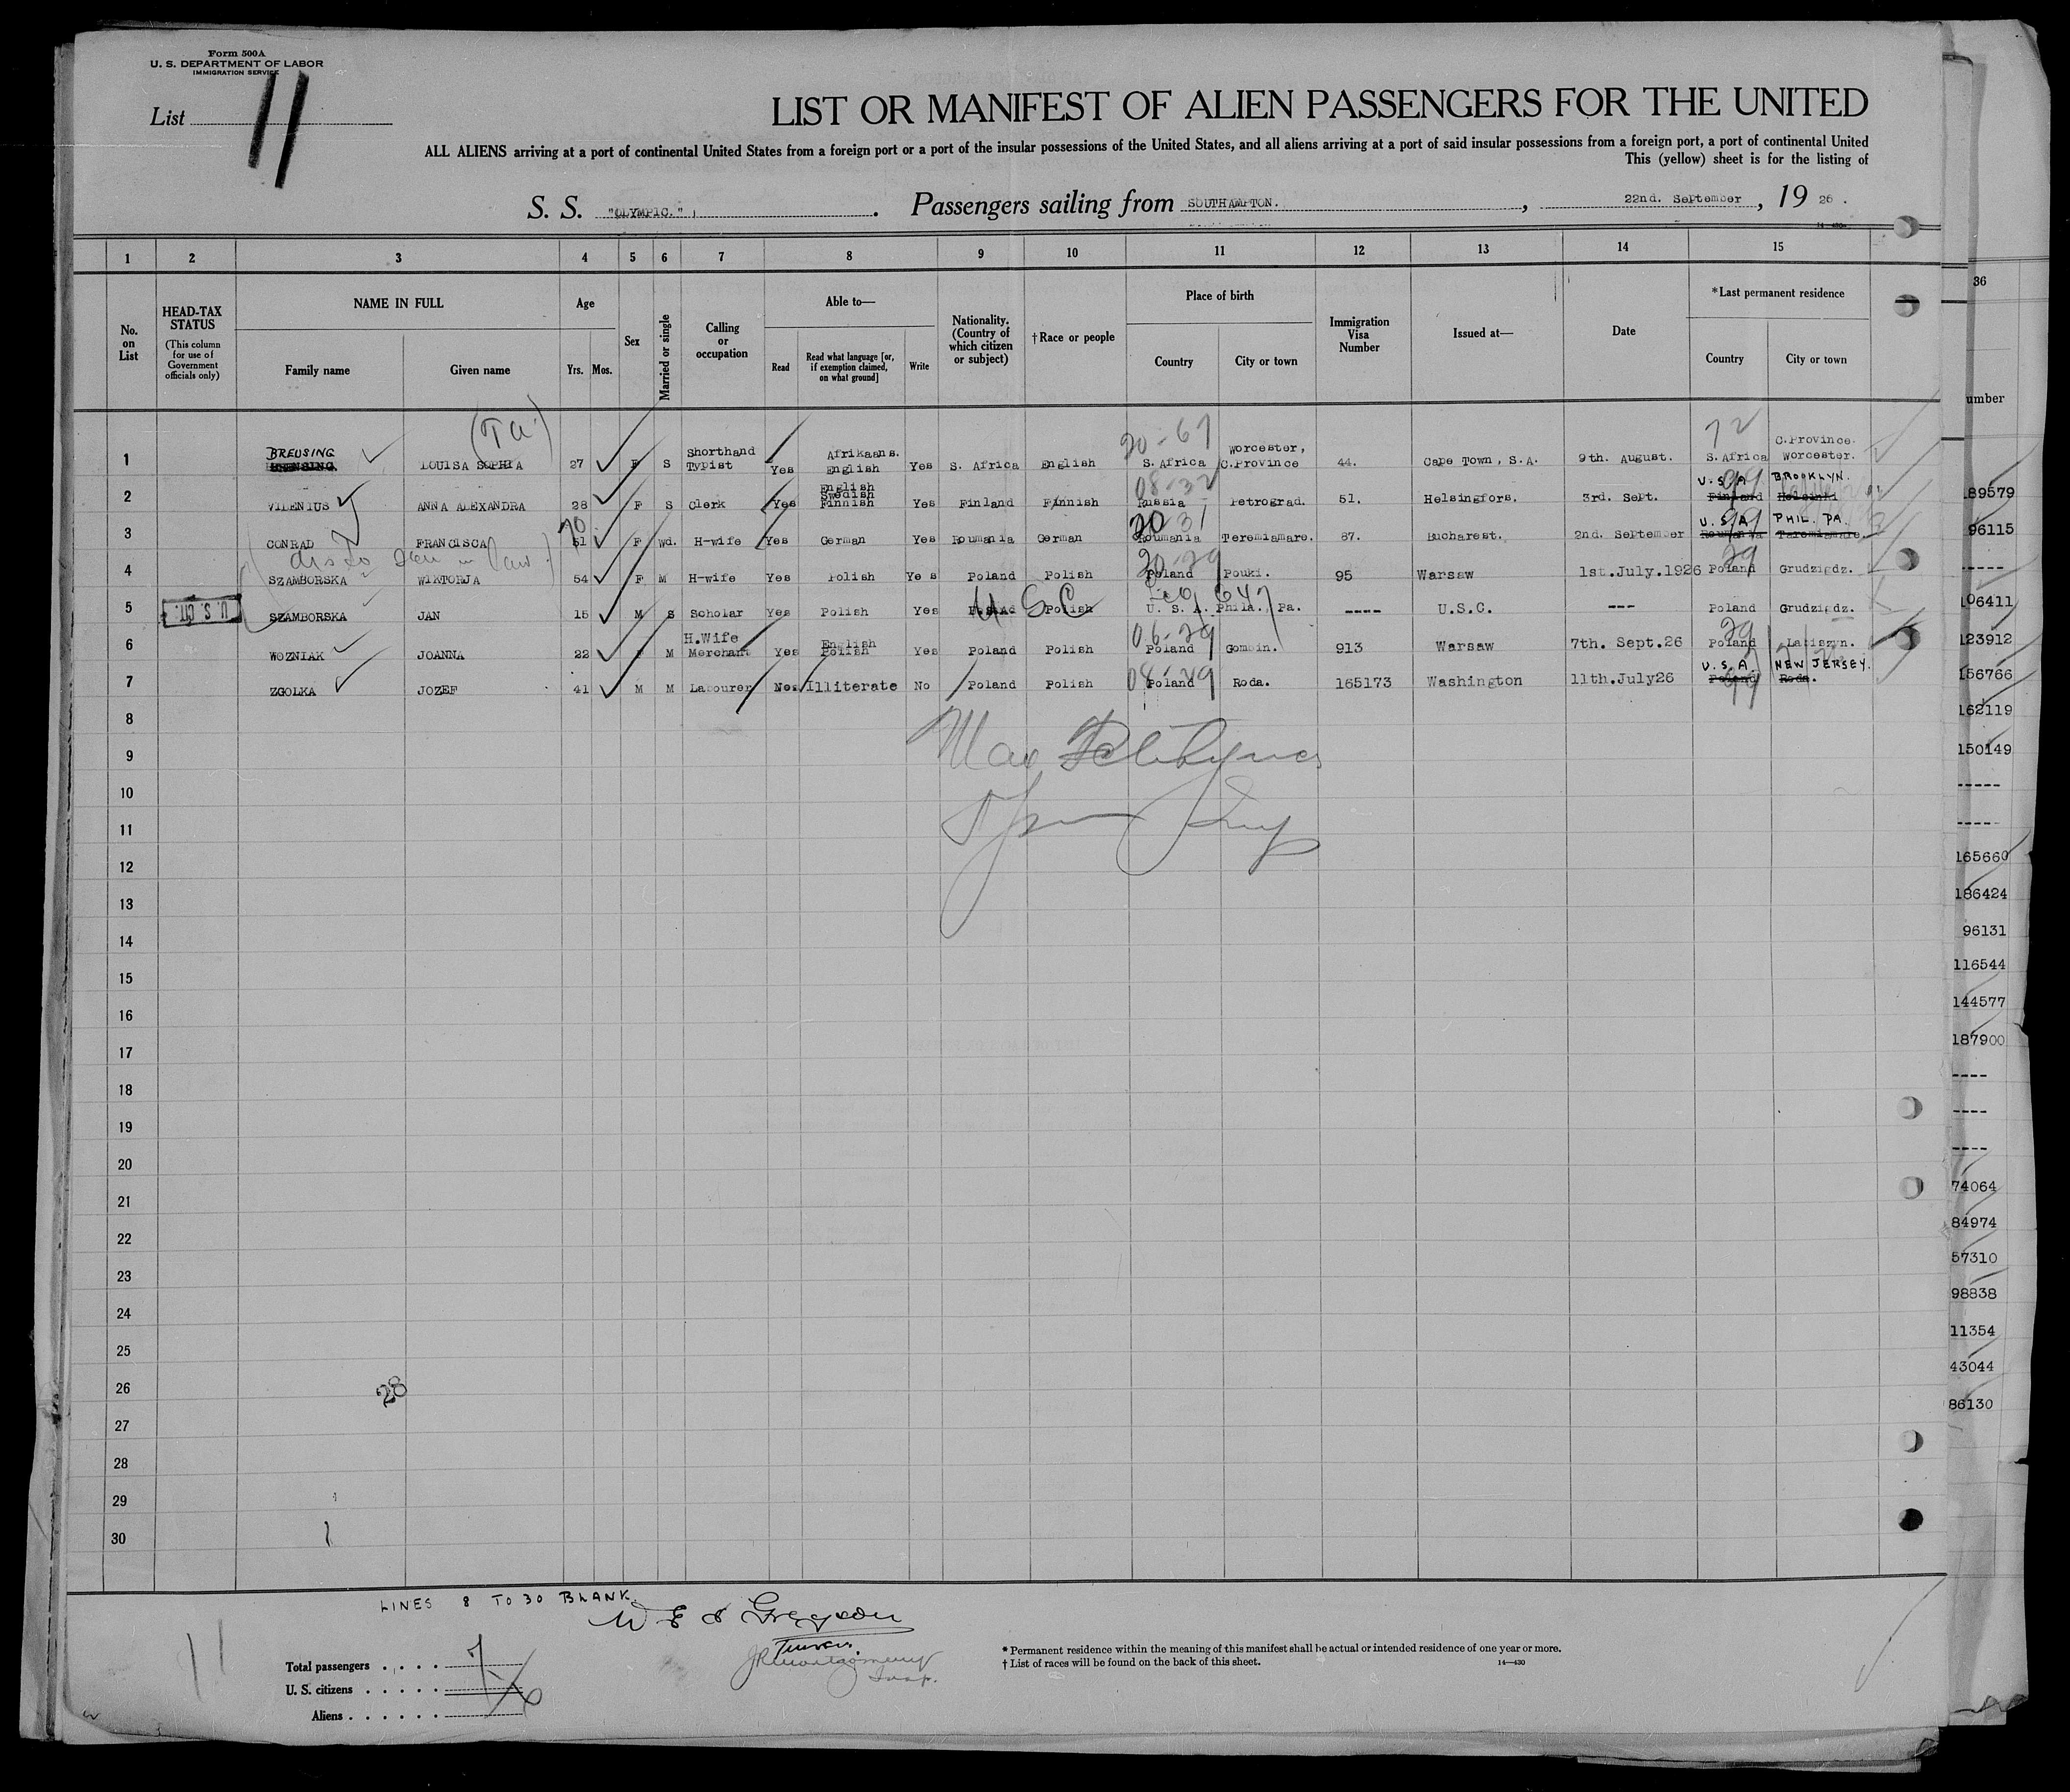 Form 500A
U. S. DEPARTMENT OF LABOR
IMMIGRATION SERVICE
List 11
LIST OR MANIFEST OF ALIEN PASSENGERS FOR THE UNITED
ALL ALIENS arriving at a port of continental United States from a foreign port or a port of the insular possessions of the United States, and all aliens arriving at a port of said insular possessions from a foreign port, a port of continental United
This (yellow) sheet is for the listing of
S. S. "OLYMPIC." . Passengers sailing from SOUTHAMPTON. , 22nd. September , 19 26 .
14—430
1 2 3 4 5 6 7 8 9 10 11 12 13 14 15
36
No. on List
HEAD-TAX STATUS
(This column for use of Government officials only)
NAME IN FULL
Family name Given name
Age
Yrs. Mos.
Sex
Married or single
Calling or occupation
Able to—
Read
Read what language [or, if exemption claimed, on what ground]
Write
Nationality. (Country of which citizen or subject)
†Race or people
Place of birth
Country City or town
Immigration Visa Number
Issued at—
Date
*Last permanent residence
Country City or town
umber
(TA.)
20-67
72
1 BREUSING LOUISA SOPHIA 27 F S Shorthand Typist Yes Afrikaans. English Yes S. Africa English S. Africa Worcester, C.Province 44. Cape Town, S.A. 9th. August. S. Africa C.Province. Worcester.
08-32
99
2 VILENIUS ANNA ALEXANDRA 28 F S Clerk Yes English Swedish Finnish Yes Finland Finnish Russia Petrograd. 51. Helsingfors. 3rd. Sept. U.S.A. Finland BROOKLYN. Helsinki
20 31
99
3 CONRAD FRANCISCA 70 61 F Wd. H-wife Yes German Yes Roumania German Roumania Teremiamare. 67. Bucharest. 2nd. September U.S.A. Roumania PHIL. PA. Teremiamare.
20-29
29
4 SZAMBORSKA WIKTORJA 54 F M H-wife Yes Polish Yes Poland Polish Poland Pouki. 95 Warsaw 1st.July.1926 Poland Grudzigdz.
U. S. CIT.
5 SZAMBORSKA JAN 15 M S Scholar Yes Polish Yes U S C Poland Polish U. S. A. Phila. Pa. ---- U.S.C. --- Poland Grudzigdz.
06-29
29
6 WOZNIAK JOANNA 22 F M H.Wife Merchant Yes English Polish Yes Poland Polish Poland Gombin. 913 Warsaw 7th. Sept.26 Poland Labiszyn.
08-29
99
7 ZGOLKA JOZEF 41 M M Labourer No. Illiterate No Poland Polish Poland Roda. 165173 Washington 11th.July26 U.S.A. Poland NEW JERSEY. Roda.
8
9
10
11
12
13
14
15
16
17
18
19
20
21
22
23
24
25
26 28
27
28
29
30
89579
96115
-----
106411
123912
156766
162119
150149
-----
-----
165660
186424
96131
116544
144577
187900
----
----
----
74064
84974
57310
98838
11354
43044
86130
LINES 8 TO 30 BLANK.
W E S Gregson
JR Montgomery
Insp.
11
Total passengers . . . . . 7
U. S. citizens . . . . .
Aliens . . . . . .
* Permanent residence within the meaning of this manifest shall be actual or intended residence of one year or more.
† List of races will be found on the back of this sheet.
14—430